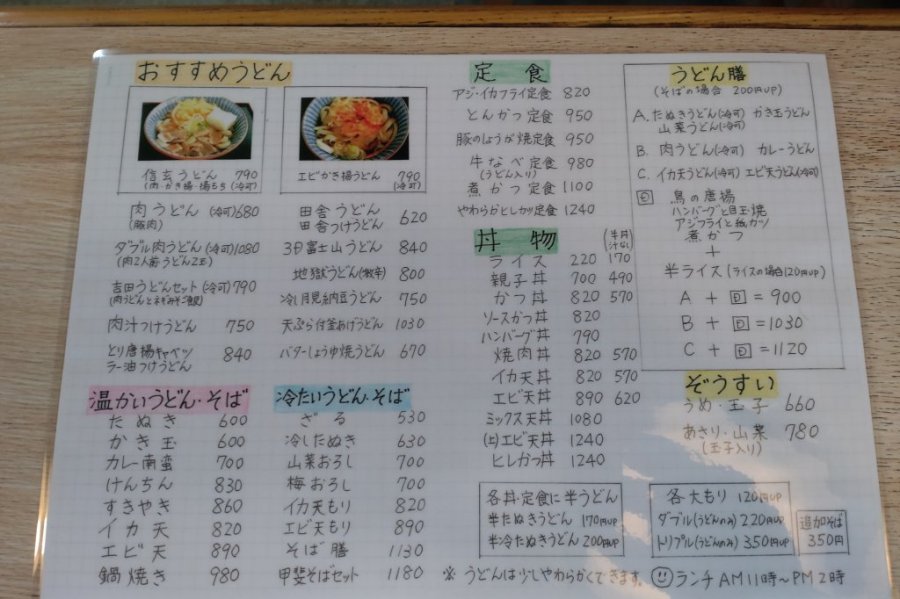 おすすめうどん
信玄うどん 790
(肉・かき揚・揚もち(冷可)
エビかき揚うどん 790
(冷可)
肉うどん(冷可)680
(豚肉)
ダブル肉うどん(冷可)1080
(肉2人前うどん2玉)
吉田うどんセット(冷可)790
肉汁つけうどん 750
とり唐揚キャベツ 840
ラー油つけうどん
田舎うどん 620
田舎つけうどん
3日富士山うどん 840
地獄うどん(激辛) 800
冷し月見納豆うどん 750
天ぷら付釜あげうどん 1030
バターしょうゆ焼うどん 670
温かいうどん・そば
たぬき 600
かき玉 600
カレー南蛮 700
けんちん 830
すきやき 860
イカ天 820
エビ天 890
鍋焼き 980
冷たいうどん・そば
ざる 530
冷したぬき 630
山菜おろし 700
梅おろし 700
イカ天もり 820
エビ天もり 890
そば膳 1130
甲斐そばセット 1180
定食
アジ・イカフライ定食 820
とんかつ定食 950
豚のしょうが焼定食 950
牛なべ定食 980
(うどん入り)
煮かつ定食 1100
やわらかヒレカツ定食 1240
丼物 (半丼
汁なし)
ライス 220 170
親子丼 700 490
かつ丼 820 570
ソースかつ丼 820
ハンバーグ丼 790
焼肉丼 820 570
イカ天丼 820 570
エビ天丼 890 620
ミックス天丼 1080
(上)エビ天丼 1240
ヒレかつ丼 1240
各丼・定食に半うどん
半たぬきうどん 170円UP
半冷たぬきうどん 200円UP
うどん膳
(そばの場合 200円UP)
A. たぬきうどん(冷可) かき玉うどん
山菜うどん(冷可)
B. 肉うどん(冷可) カレーうどん
C. イカ天うどん(冷可) エビ天うどん(冷可)
D 鳥の唐揚
ハンバーグと目玉焼
アジフライと紙カツ
煮かつ
+
半ライス(ライスの場合120円UP)
A + D = 900
B + D = 1030
C + D = 1120
ぞうすい
うめ・玉子 660
あさり・山菜 780
(玉子入り)
各大もり 120円UP
ダブル(うどんのみ)220円UP
トリプル(うどんのみ)350円UP
追加そば
350円
※ うどんは少しやわらかくできます。 ランチAM11時~PM2時